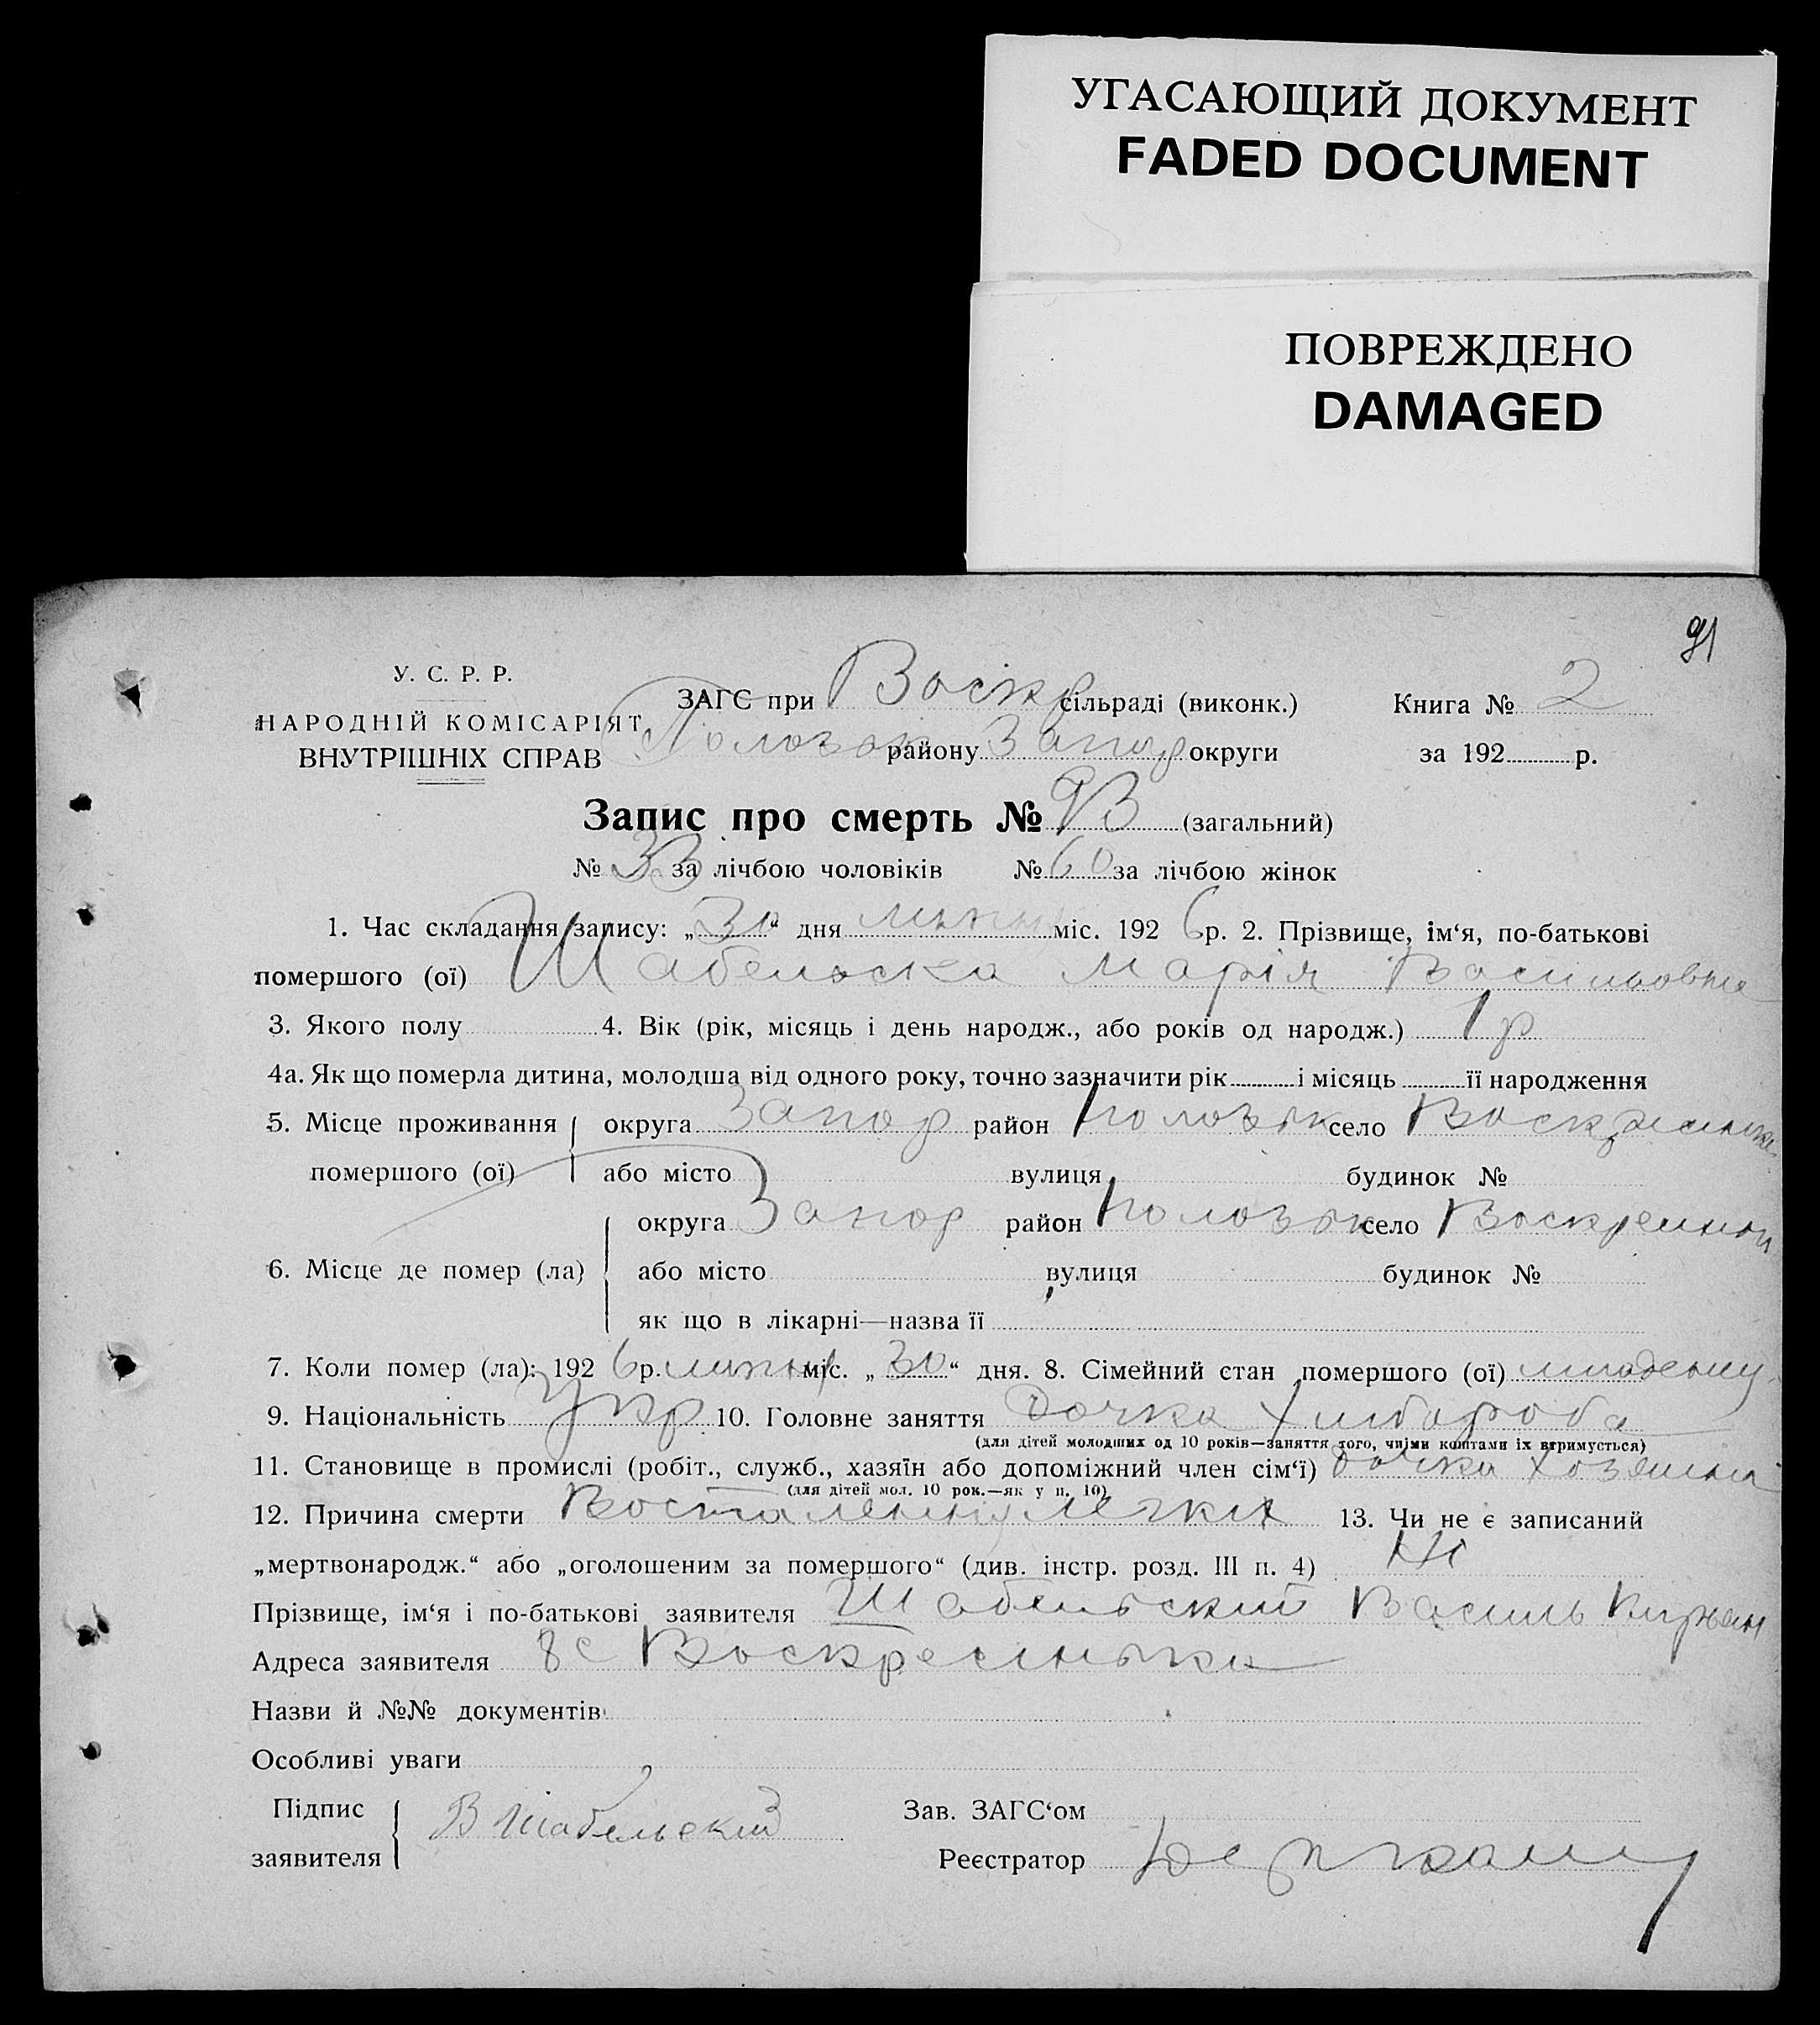 УГАСАЮЩИЙ ДОКУМЕНТ
FADED DOCUMENT
ПОВРЕЖДЕНО
DAMAGED
91
У. С. Р. Р.
НАРОДНІЙ КОМІСАРІЯТ
ВНУТРІШНІХ СПРАВ
ЗАГС при Воскр сільраді (виконк.)
Книга № 2
району Запор округи
за 192 р.
Запис про смерть № 93 (загальний)
№ 33 за лічбою чоловіків № 60 за лічбою жінок
1. Час складання запису: „30“ дня липня міс. 1926 р. 2. Прізвище, ім‘я, по-батькові
помершого (ої) Шабельска Марія Васильовна
3. Якого полу 4. Вік (рік, місяць і день народж., або років од народж.) 1 р
4а. Як що померла дитина, молодша від одного року, точно зазначити рік і місяць її народження
5. Місце проживання округа Запор район Пологівк село Воскресенка
помершого (ої) або місто вулиця будинок №
округа Запор район Пологівк село
6. Місце де помер (ла) або місто вулиця будинок №
як що в лікарні—назва її
7. Коли помер (ла): 1926 р. липня міс. „30“ дня. 8. Сімейний стан помершого (ої)
9. Національність Укр 10. Головне заняття Дочка Хлібороба
(для дітей молодших од 10 років—заняття того, чиїми коштами їх втримується)
11. Становище в промислі (робіт., служб., хазяїн або допоміжний член сім‘ї) дочка
(для дітей мол. 10 рок.—як у п. 10)
12. Причина смерти легких 13. Чи не є записаний
„мертвонародж.“ або „оголошеним за помершого“ (див. інстр. розд. III п. 4) Ні
Прізвище, ім‘я і по-батькові заявителя Шабельский Василь
Адреса заявителя с Воскресінька
Назви й №№ документів
Особливі уваги
Підпис
заявителя
В Шабельский
Зав. ЗАГС‘ом
Реєстратор